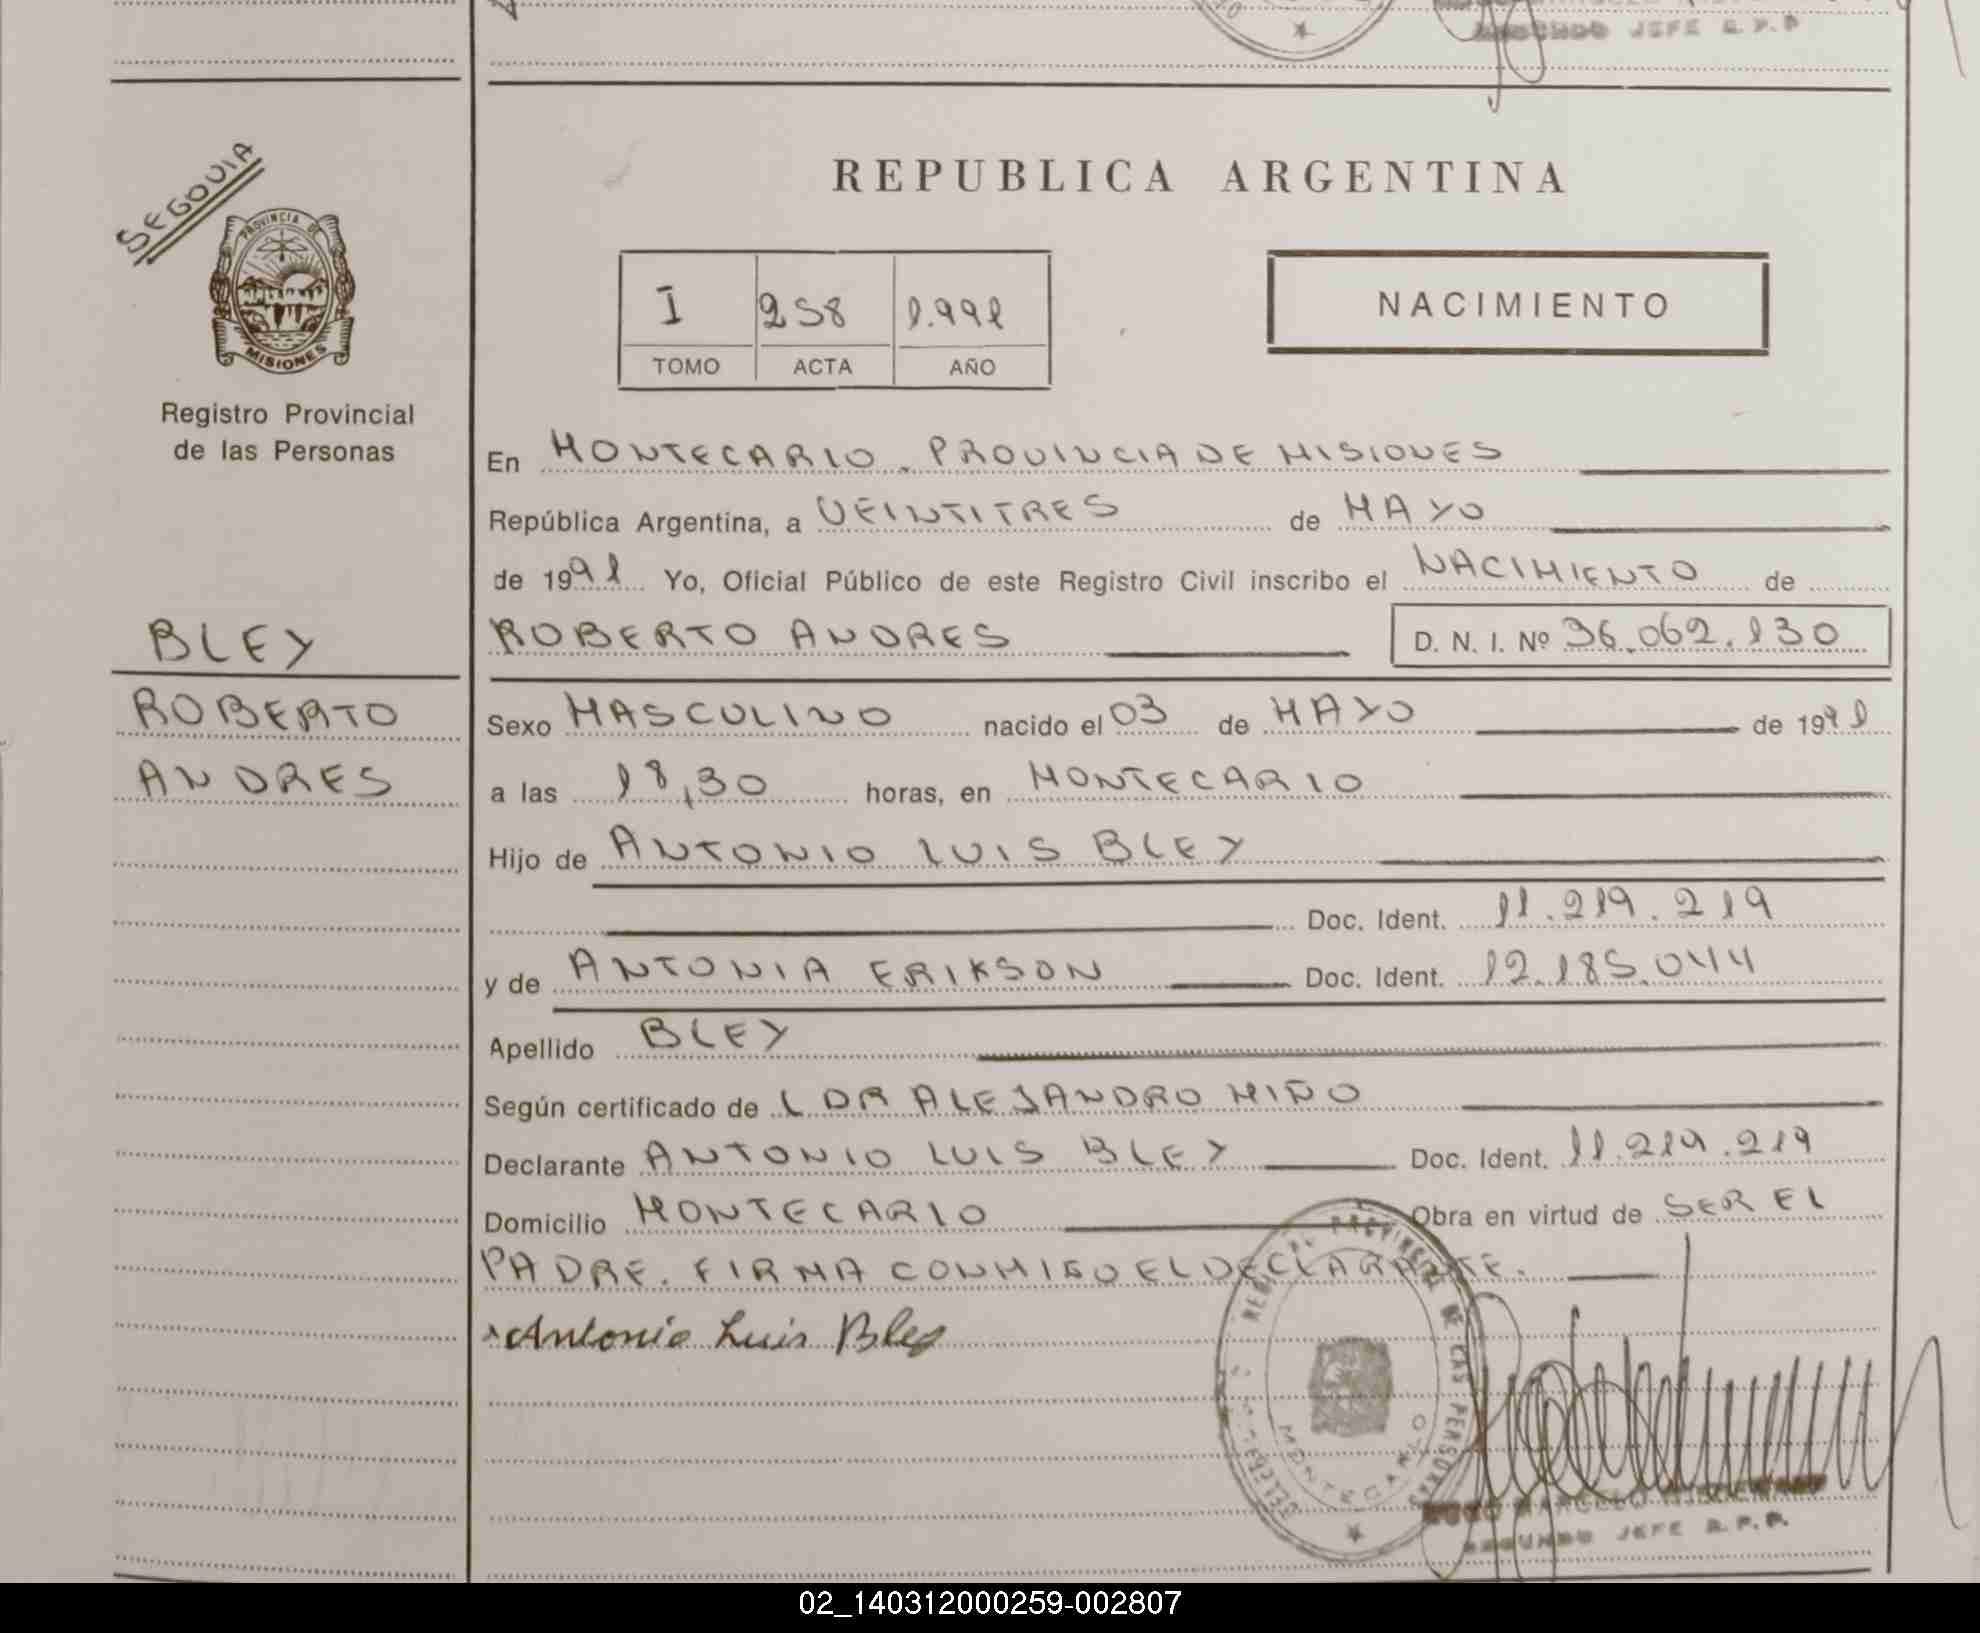 SEGUNDO JEFE R.P.P
SEGOVIA
PROVINCIA DE
MISIONES
Registro Provincial
de las Personas
BLEY
ROBERTO
ANDRES
REPUBLICA ARGENTINA
I 258 1.991
TOMO ACTA AÑO
NACIMIENTO
En MONTECARLO. PROVINCIA DE MISIONES
República Argentina, a VEINTITRES de MAYO
de 1991 Yo, Oficial Público de este Registro Civil inscribo el NACIMIENTO de
ROBERTO ANDRES D. N. I. Nº 36.062.130
Sexo MASCULINO nacido el 03 de MAYO de 1991
a las 18,30 horas, en MONTECARLO
Hijo de ANTONIO LUIS BLEY
Doc. Ident. 11.219.219
y de ANTONIA ERIKSON Doc. Ident. 12.185.044
Apellido BLEY
Según certificado de L DR ALEJANDRO MIÑO
Declarante ANTONIO LUIS BLEY Doc. Ident. 11.219.219
Domicilio MONTECARLO Obra en virtud de SER EL
PADRE. FIRMA CONMIGO EL DECLARANTE.
Antonio Luis Bley
PROVINCIAL DE LAS PERSONAS
MONTECARLO
SEGUNDO JEFE R.P.P.
02_140312000259-002807